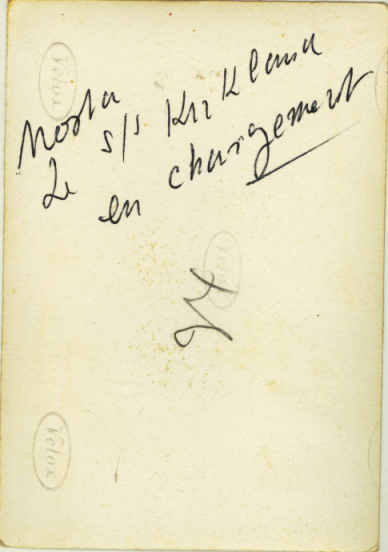 Velox
Mosta
Le s/s Kirkland
en chargement
Velox
Velox